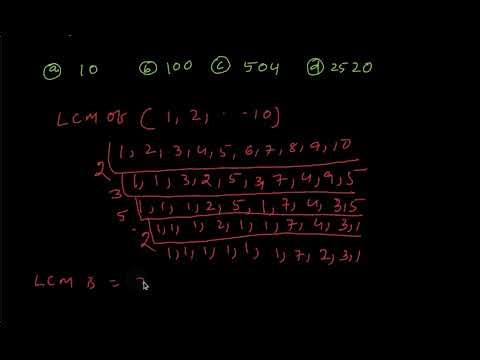 ⓐ 10 ⓑ 100 ⓒ 504 ⓓ 2520
LCM OF (1, 2, - - -10)
2 1, 2, 3, 4, 5, 6, 7, 8, 9, 10
3 1, 1, 3, 2, 5, 3, 7, 4, 9, 5
5 1, 1, 1, 2, 5, 1, 7, 4, 3, 5
2 1, 1, 1, 2, 1, 1, 7, 4, 3, 1
1, 1, 1, 1, 1, 1, 7, 2, 3, 1
LCM B =